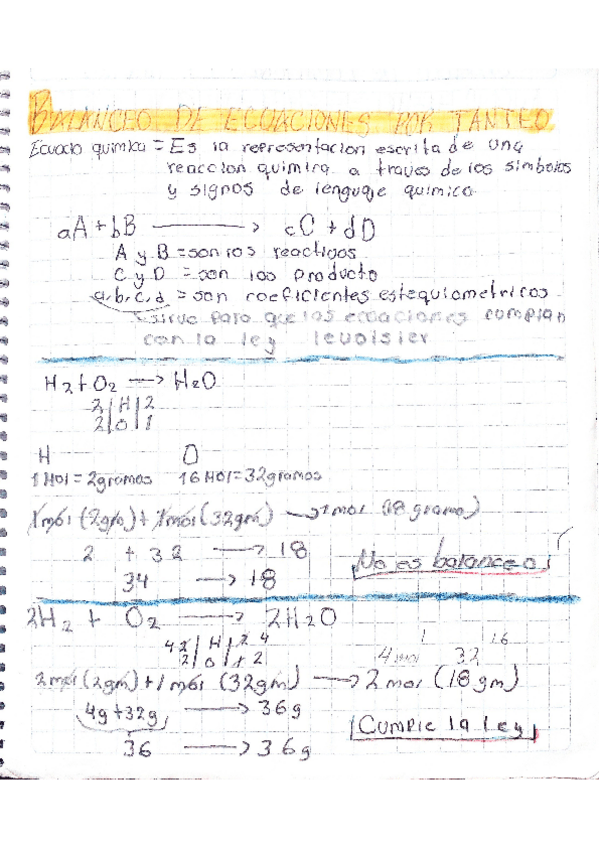 BALANCEO DE ECUACIONES POR TANTEO
Ecuacio quimica = Es la representacion escrita de una
reaccion quimica a traves de los simbolos
y signos de lenguaje quimico
aA + bB → cC + dD
A y B = son los reactivos
C y D = son los producto
a,b,c,d = son coeficientes estequiometricos
sirve para que las ecuaciones cumplan
con la ley levoisier
H2 + O2 → H2O
2 | H | 2
2 | O | 1
H O
1 Mol = 2gramos 16 Mol = 32gramos
1mol (2gm) + 1mol (32gm) → 1 mol (18 gramo)
2 + 32 → 18
34 → 18
No es balanceo
2H2 + O2 → 2H2O
4 2 | H | 2 4
2 | O | 1 2
1 16
4 32
2mol (2gm) + 1 mol (32gm) → 2 mol (18 gm)
4g + 32g → 36g
Cumple la ley
36 → 36g